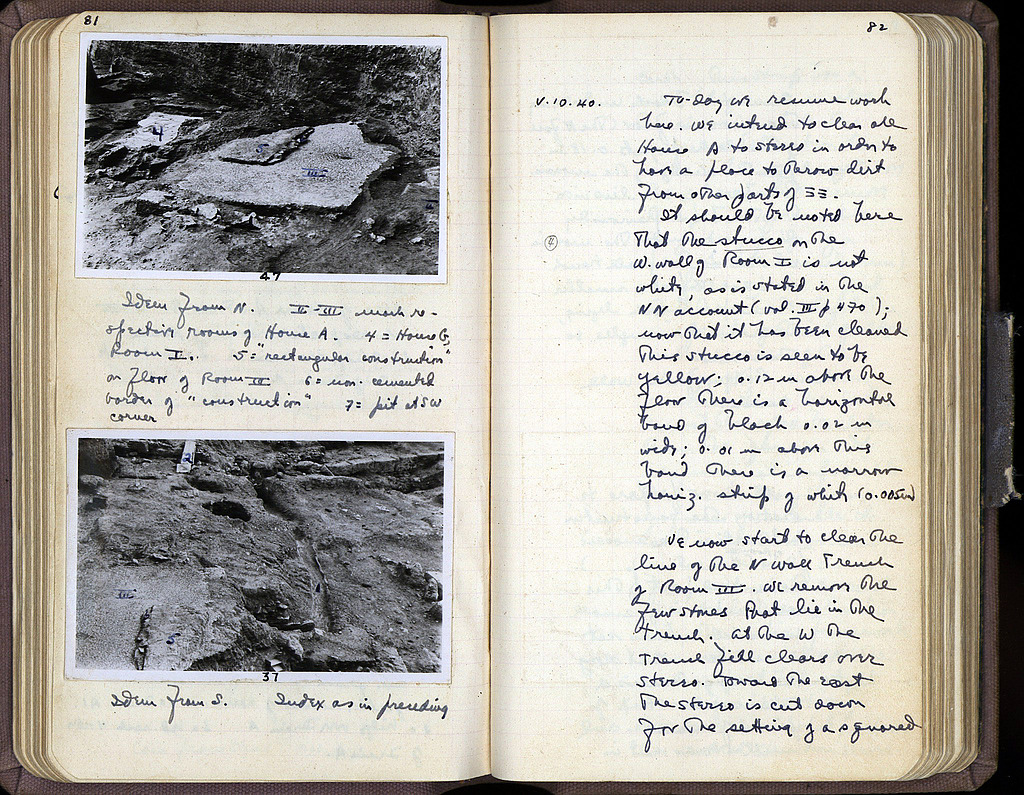 81
4
5
III
47
Idem from N. II-III mark re-
spective rooms of House A. 4 = House G,
Room I. 5 = "rectangular construction"
on floor of Room III 6 = non. cemented
border of "construction" 7 = pit at SW
corner
III
5
37
Idem from S. Index as in preceding
82
V.10.40. To-day we resume work
here. We intend to clear all
House A to stereo in order to
have a place to throw dirt
from other parts of ΞΞ.
It should be noted here
(4) that the stucco on the
W. wall of Room II is not
white, as is stated in the
NN account (vol. III p 470);
now that it has been cleaned
this stucco is seen to be
yellow; 0.12 m above the
floor there is a horizontal
band of black 0.02 m
wide; 0.01 m above this
band there is a narrow
horiz. strip of white (0.005m)
We now start to clear the
line of the N wall trench
of Room III. We remove the
few stones that lie in the
trench. At the W the
trench fill clears over
stereo. Toward the east
the stereo is cut down
for the setting of a squared